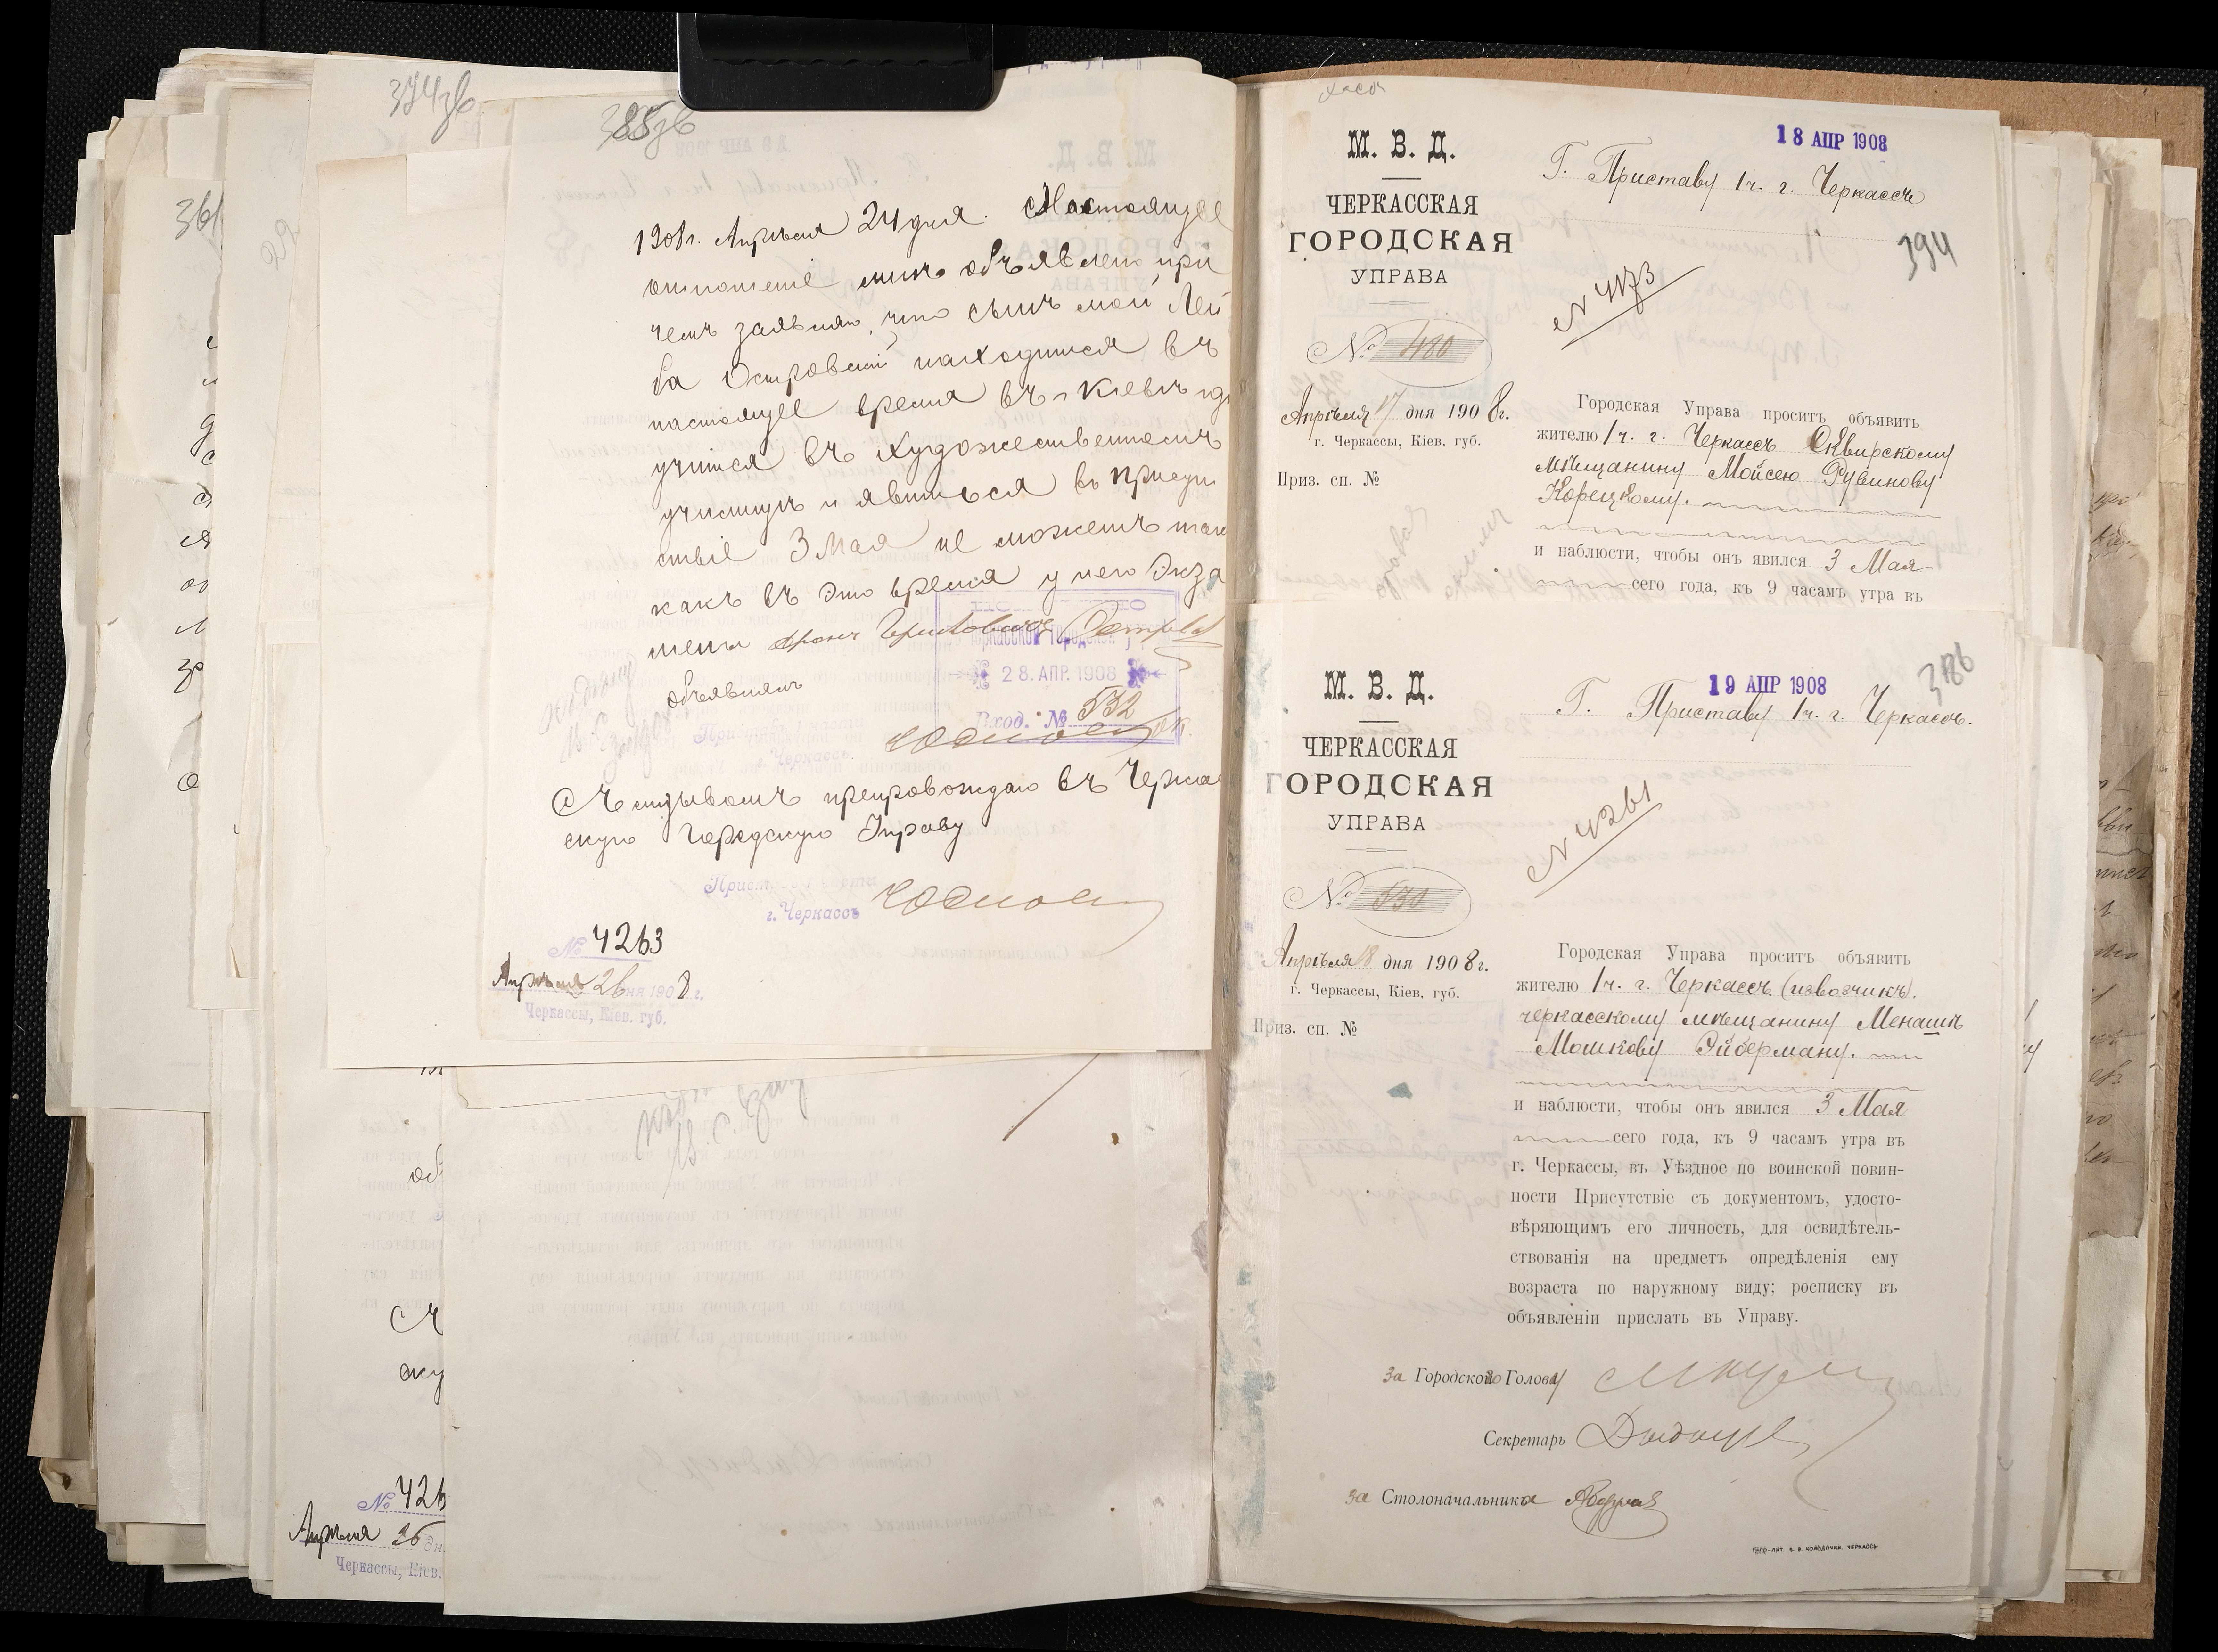 374зв
385зв
361
1908 г. Апрѣля 24 дня. Настоящее
отношеніе мнѣ объявлено при
чемъ заявляю, что сынъ мой Лей
ба Островскій находится въ
настоящее время въ г. Кіевѣ гдѣ
учится въ Художественномъ
училищѣ и явиться въ присут
ствіе 3 Мая не можетъ такъ
какъ въ это время у него Экза
мены
28. АПР. 1908
Вход. № 532
объявилъ
г. Черкассъ
Съ отзывомъ препровождаю въ Черкас
скую Городскую Управу
г. Черкассъ
№ 4263
Апрѣля 26 дня 1908 г.
Черкассы, Кіев. губ.
об
Съ
ску
№ 426
Апрѣля 26 дн.
Черкассы, Кіев.
М. В. Д.
ЧЕРКАССКАЯ
ГОРОДСКАЯ
УПРАВА
№ 480
Апрѣля 17 дня 1908 г.
г. Черкассы, Кіев. губ.
Приз. сп. №
18 АПР 1908
Г. Приставу 1 ч. г. Черкассъ
394
N 4173
Городская Управа проситъ объявить
жителю 1 ч. г. Черкассъ Сквирскому
мѣщанину Мойсею Рувинову
Корецкому.
и наблюсти, чтобы онъ явился 3 Мая
сего года, къ 9 часамъ утра въ
М. В. Д.
ЧЕРКАССКАЯ
ГОРОДСКАЯ
УПРАВА
№ 530
Апрѣля 18 дня 1908 г.
г. Черкассы, Кіев. губ.
Приз. сп. №
386
19 АПР 1908
Г. Приставу 1 ч. г. Черкассъ.
N 4261
Городская Управа проситъ объявить
жителю 1 ч. г. Черкассъ (извозчикъ).
черкасскому мѣщанину Менашѣ
Мошкову Эйберману.
и наблюсти, чтобы онъ явился 3 Мая
сего года, къ 9 часамъ утра въ
г. Черкассы, въ Уѣздное по воинской повин-
ности Присутствіе съ документомъ, удосто-
вѣряющимъ его личность, для освидѣтель-
ствованія на предметъ опредѣленія ему
возраста по наружному виду; росписку въ
объявленіи прислать въ Управу.
За Городского Голову
Секретарь
За Столоначальника